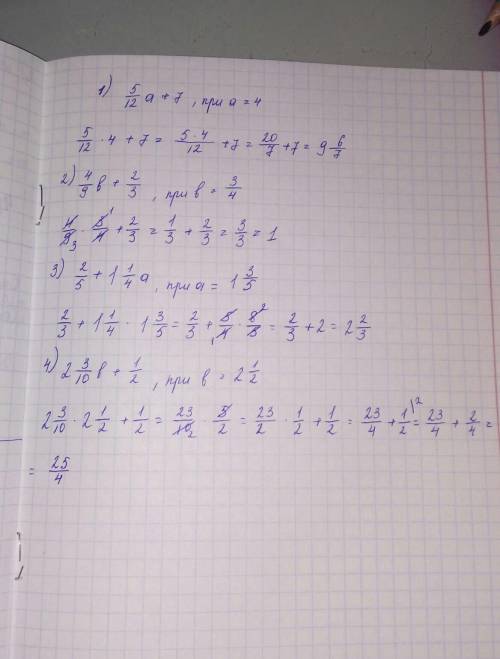 1) 5/12 a + 7, при a = 4
5/12 · 4 + 7 = 5·4/12 + 7 = 20/7 + 7 = 9 6/7
2) 4/9 в + 2/3, при в = 3/4
4/9 3 · 3/4 1 + 2/3 = 1/3 + 2/3 = 3/3 = 1
3) 2/5 + 1 1/4 a, при a = 1 3/5
2/3 + 1 1/4 · 1 3/5 = 2/3 + 5/4 1 · 8/5 2 = 2/3 + 2 = 2 2/3
4) 2 3/10 в + 1/2, при в = 2 1/2
2 3/10 · 2 1/2 + 1/2 = 23/10 2 · 5/2 = 23/2 · 1/2 + 1/2 = 23/4 + 1/2 |2 = 23/4 + 2/4 =
= 25/4